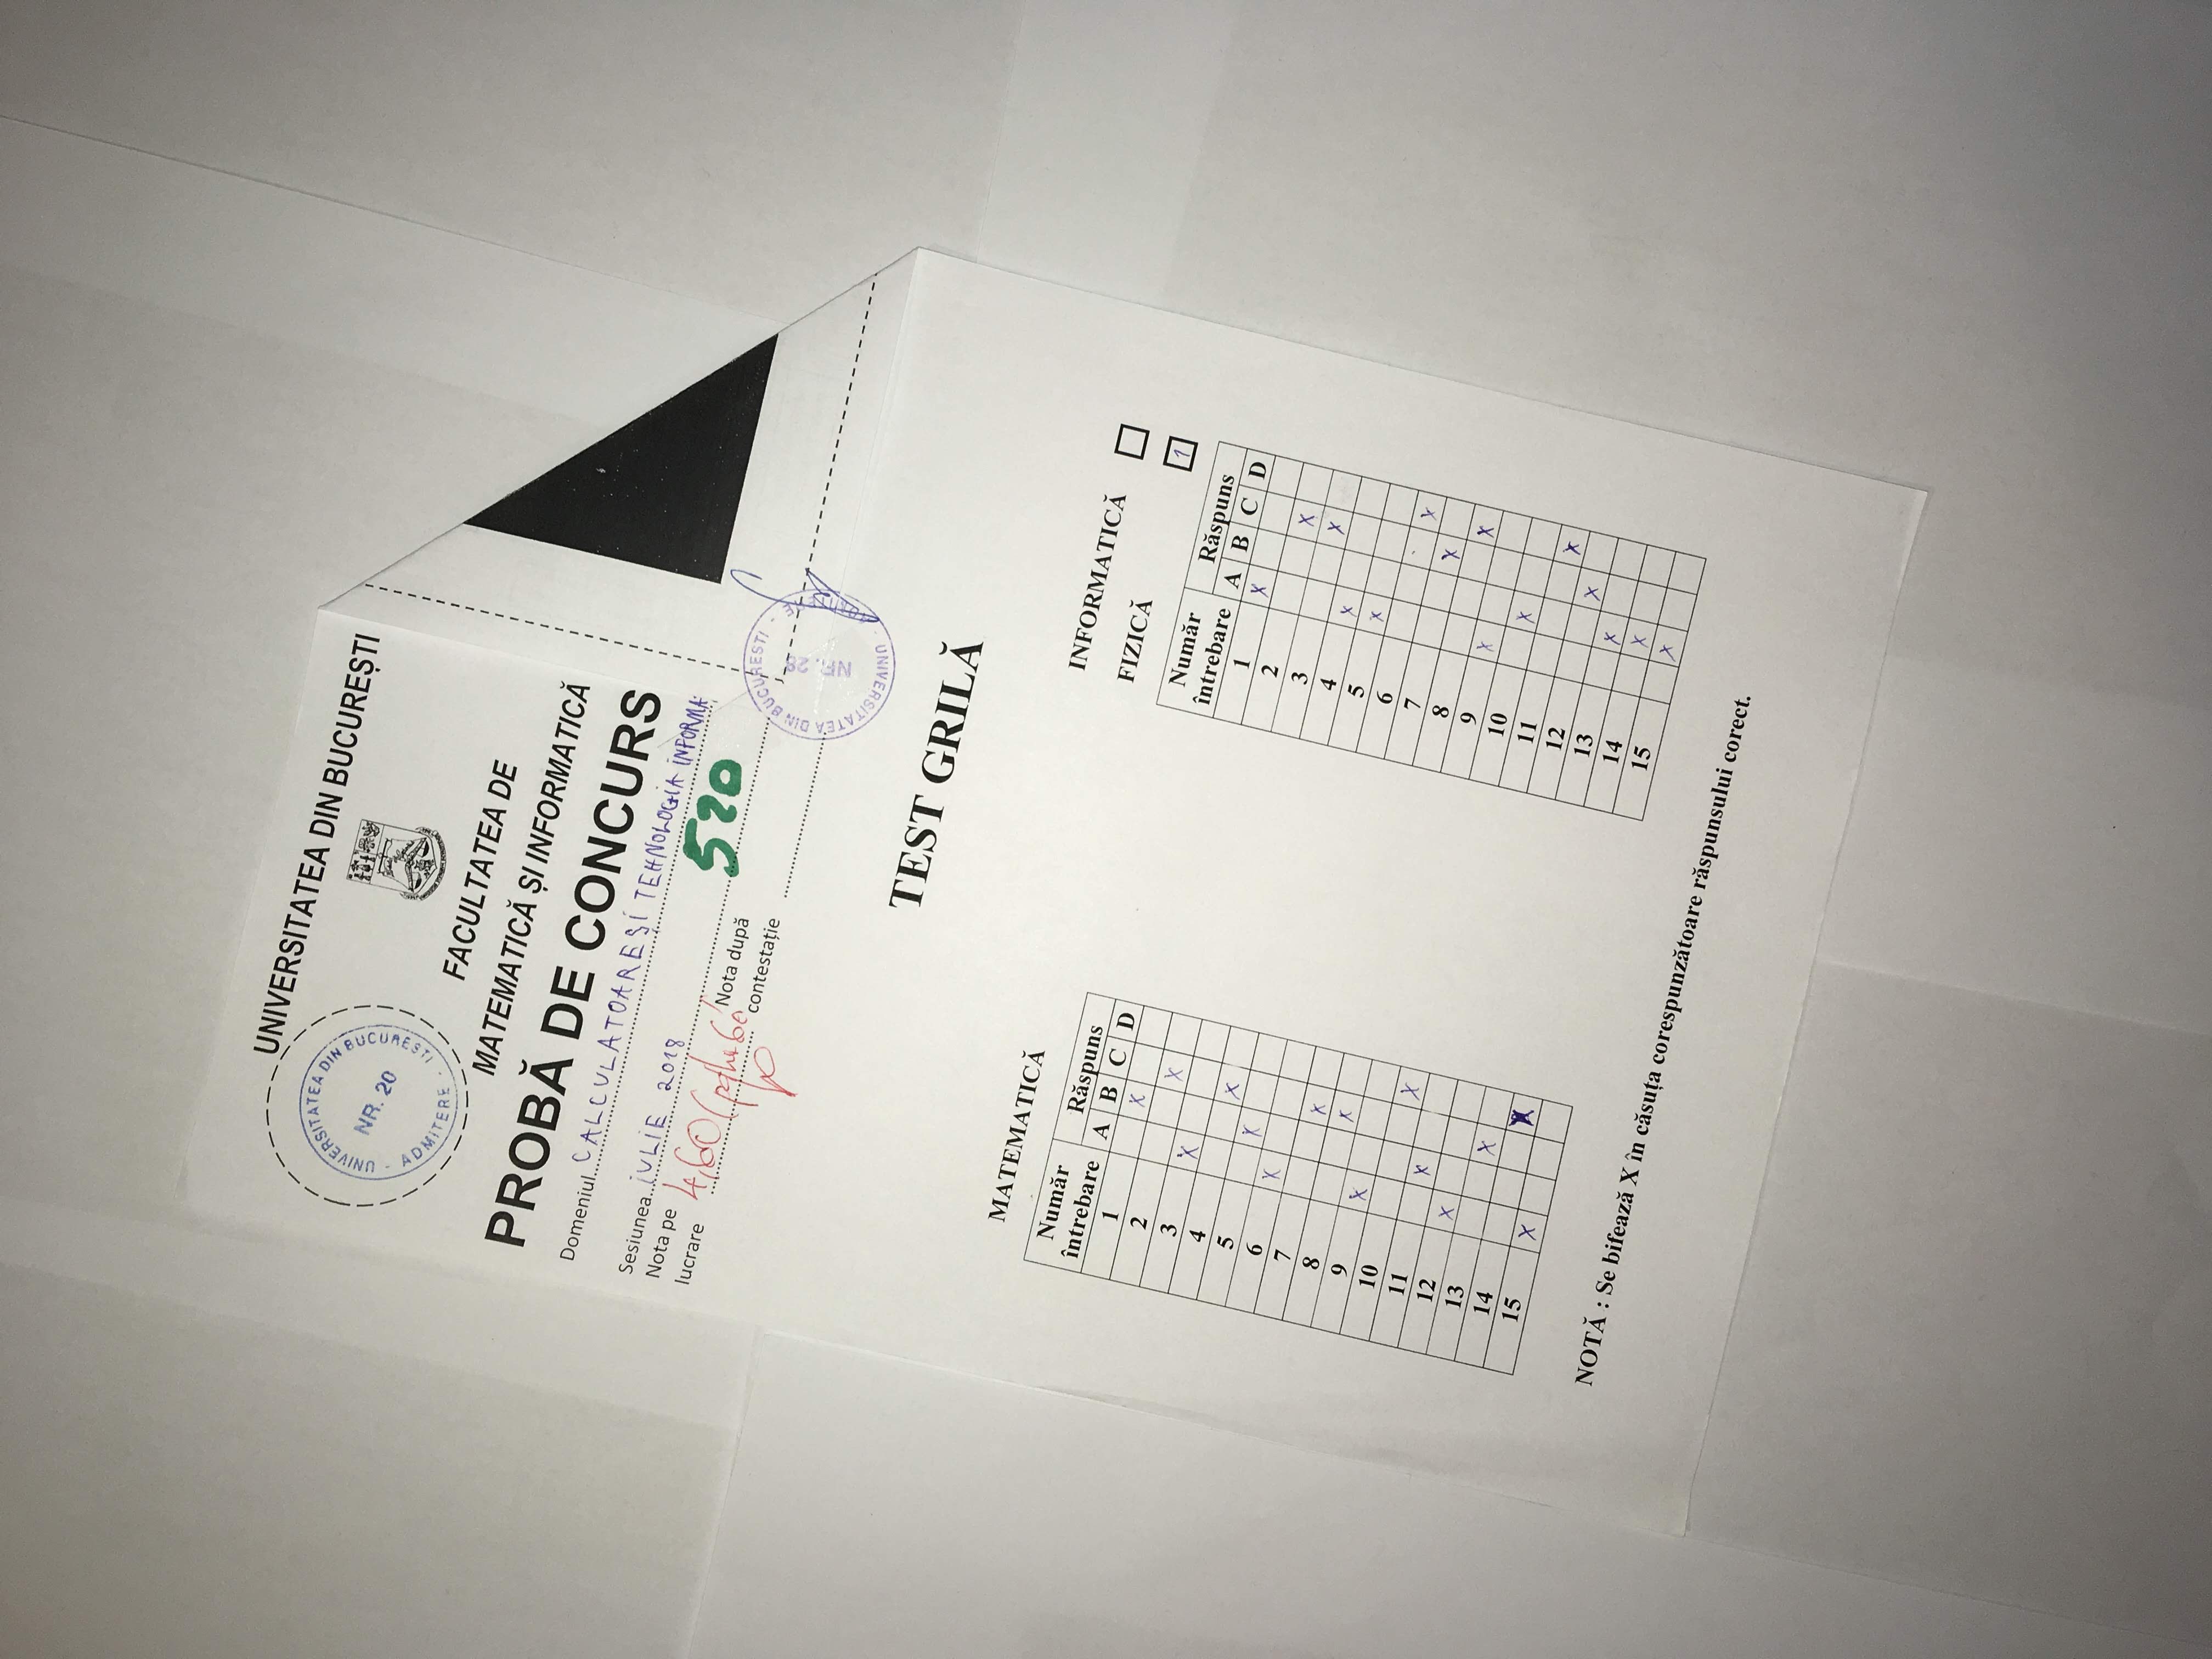 UNIVERSITATEA DIN BUCUREȘTI
UNIVERSITATEA DIN BUCUREȘTI - ADMITERE -
NR. 20
FACULTATEA DE
MATEMATICĂ ȘI INFORMATICĂ
PROBĂ DE CONCURS
Domeniul CALCULATOARE ȘI TEHNOLOGIA INFORMA
Sesiunea IULIE 2018
Nota pe lucrare 4,60
Nota după contestație
520
UNIVERSITATEA DIN BUCURESTI
NR. 28
TEST GRILĂ
MATEMATICĂ
Număr întrebare Răspuns
A B C D
1 X
2 X
3 X
4 X
5 X
6 X
7 X
8 X
9 X
10 X
11 X
12 X
13 X
14 X
15 X
INFORMATICĂ
FIZICĂ 1
Număr întrebare Răspuns
A B C D
1 X
2 X
3 X
4 X
5 X
6 X
7 X
8 X
9 X
10 X
11 X
12 X
13 X
14 X
15 X
NOTĂ : Se bifează X în căsuța corespunzătoare răspunsului corect.